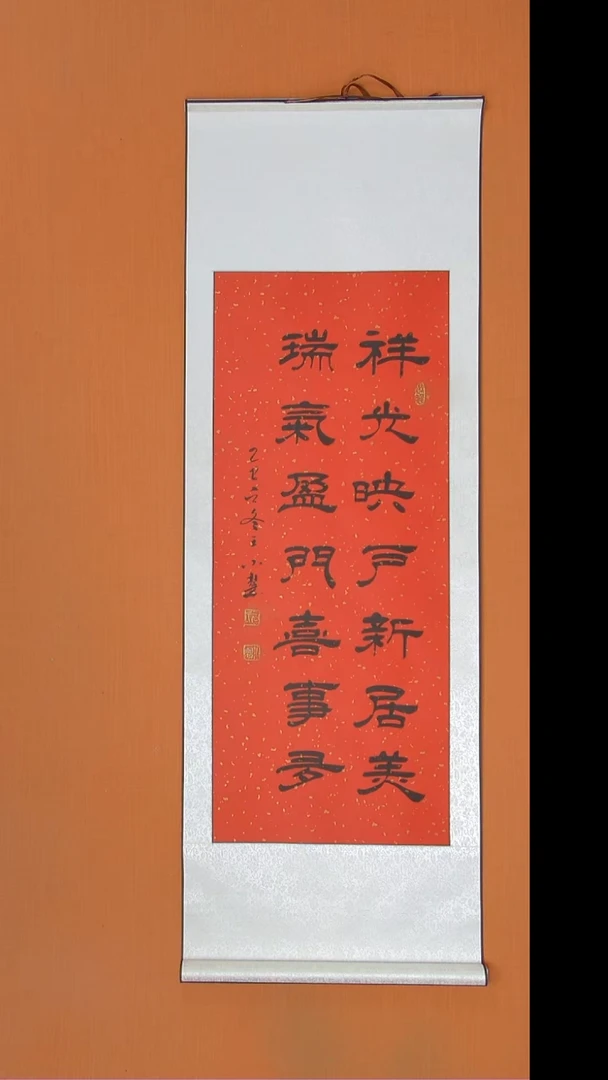 祥光映戸新居美
瑞氣盈門喜事多
乙巳之冬王小慧